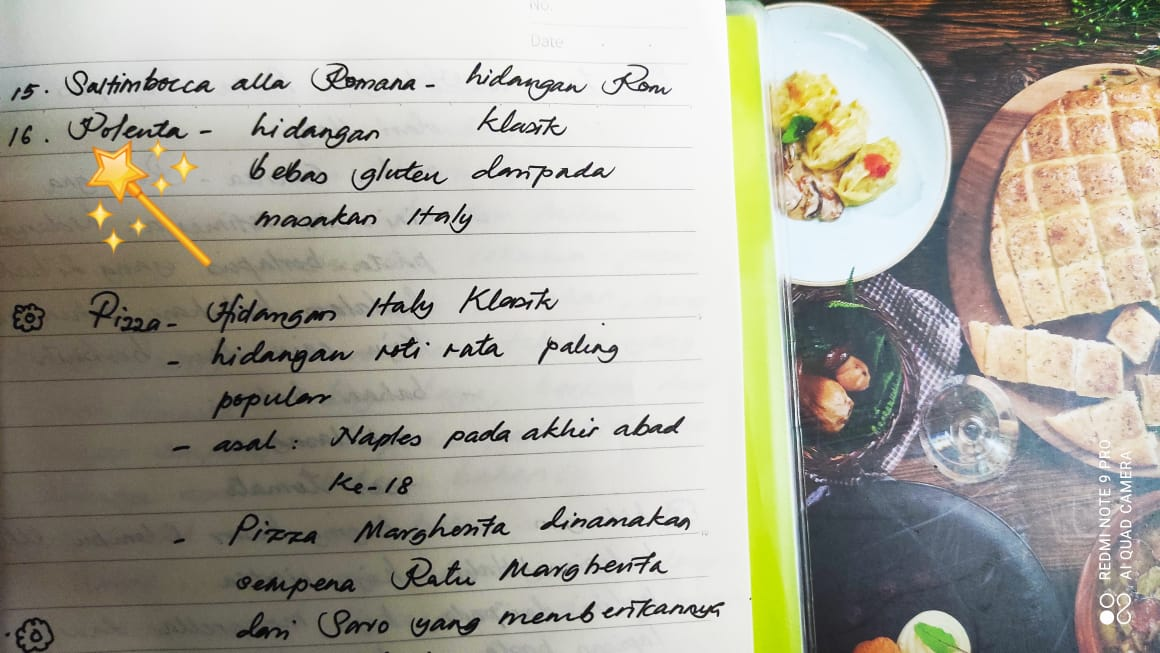 No.
Date
15. Saltimbocca alla Romana - hidangan Rom
16. Polenta - hidangan klasik
bebas gluten daripada
masakan Italy
Pizza - Hidangan Italy Klasik
- hidangan roti rata paling
popular
- asal : Naples pada akhir abad
Ke-18
- Pizza Margherita dinamakan
sempena Ratu Margherita
dari Savo yang memberikannya
REDMI NOTE 9 PRO
AI QUAD CAMERA